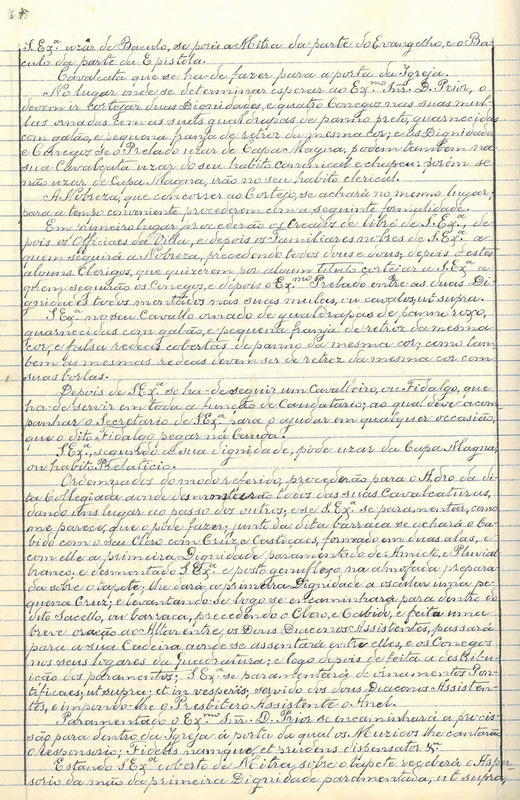 S. Exª. uzár de Baculo, se poiá a Mitra da parte do Evangelho, e o Ba-
culo da parte da Epistola.
Cavalcata que se ha-de fazer para a porta da Igreja.
No lugar onde se determinar esperar ao Exmo Snr. D. Prior, o
devem ir cortejar duas Dignidades, e quatro Conegos nas suas mul-
las ornadas com as suas gualdrapas de panno preto, guarnecidas
com galão, e pequena franja de retroz da mesma cor; e as Dignidades
e Conegos se o Prelado uzar de Capa Magna, podem tambem na
sua Cavalgata uzar do seu habito canonical e chapeu: porém se
não uzar de Capa Magna, irão no seu habito clerical.
A Nobreza, que concorrer ao Cortejo, se achará no mesmo lugar,
para a tempo conveniente procederem com a seguinte formalidade.
Em primeiro lugar procederão os Creados de libré de S. Exª., de-
pois os Officiaes da Villa, e depois os Familiares nobres de S. Exª. a
quem seguirá a Nobreza, precedendo todos dous e dous; depois d'estes
alguns Clerigos, que quizerem por algum titulo cortejar a S. Exª a
quem seguirão os Conegos, e depois o Exmo Prelado entre as duas Di-
gnidades todos montados nas suas mulas, ou cavalos, ut supra.
S. Exª no seu Cavallo ornado de gualdrapas de panno roxo,
guarnecidas com galão, e pequena franja de retroz da mesma
cor, e falsas redeas cobertas de panno da mesma cor; como tam-
bem as mesmas redeas devem ser de retroz da mesma cor com
suas borlas.
Depois de S. Exª se ha-de seguir um Cavalleiro, ou Fidalgo, que
ha-de servir em toda a funcção de Caudatario; ao qual deve acom-
panhar o Secretario de S. Exª. para o ajudar em qualquer occasião,
que o dito Fidalgo pegar na Cauda.
S. Exª., segundo a sua dignidade, póde uzar da Capa Magna,
ou habito Prelaticio.
Ordempados do modo referido, procederão para o Adro da di-
ta Collegiada aonde desmontarão todos das suas Cavalcaturas,
dando uns lugar ao passo dos outros; e se S. Exª. se paramentar, como
me parece, que o póde fazer; junto da dita barraca se achará o Ca-
bido com o seu Clero com Cruz, e Castiçaes, formado em duas alas, e
com elle a primeira Dignidade paramentado de Amicto, e Pluvial
branco, e desmontado S. Exª e posto genuflexo na almofada prepara-
da sobre o tapete, lhe dará a primeira Dignidade a oscular uma pe-
quena Cruz; e levantando-se logo se encaminhará para dentro do
dito Sacello, ou barraca, precedendo o Clero, e Cabido, e feita uma
breve oração ao Altar entre os Dous Diaconos Assistentes, passará
para a sua Cadeira aonde se assentará entre elles, e os Conegos
nos seus logares da Quadratura; e logo depois de feita a destribu-
ição dos paramentos; S. Exª se paramentará de ornamentos Pon-
tificaes, ut supra: et in vesperis, servido dos dous Diaconos Assisten-
tes, e impondo-lhe o Presbitero Assistente o Anel.
Paramentado o Exmo Snr. D. Prior se encaminhará a procis-
são para dentro da Igreja á porta da qual os Muzicos lhe cantarão
o responsorio; Fidelis namque, et prudens dispensator &ª.
Estando S. Exª coberto de Mitra, sobre o tapete receberá o Asper-
sorio da mão da primeira Dignidade paramentada, ut supra,